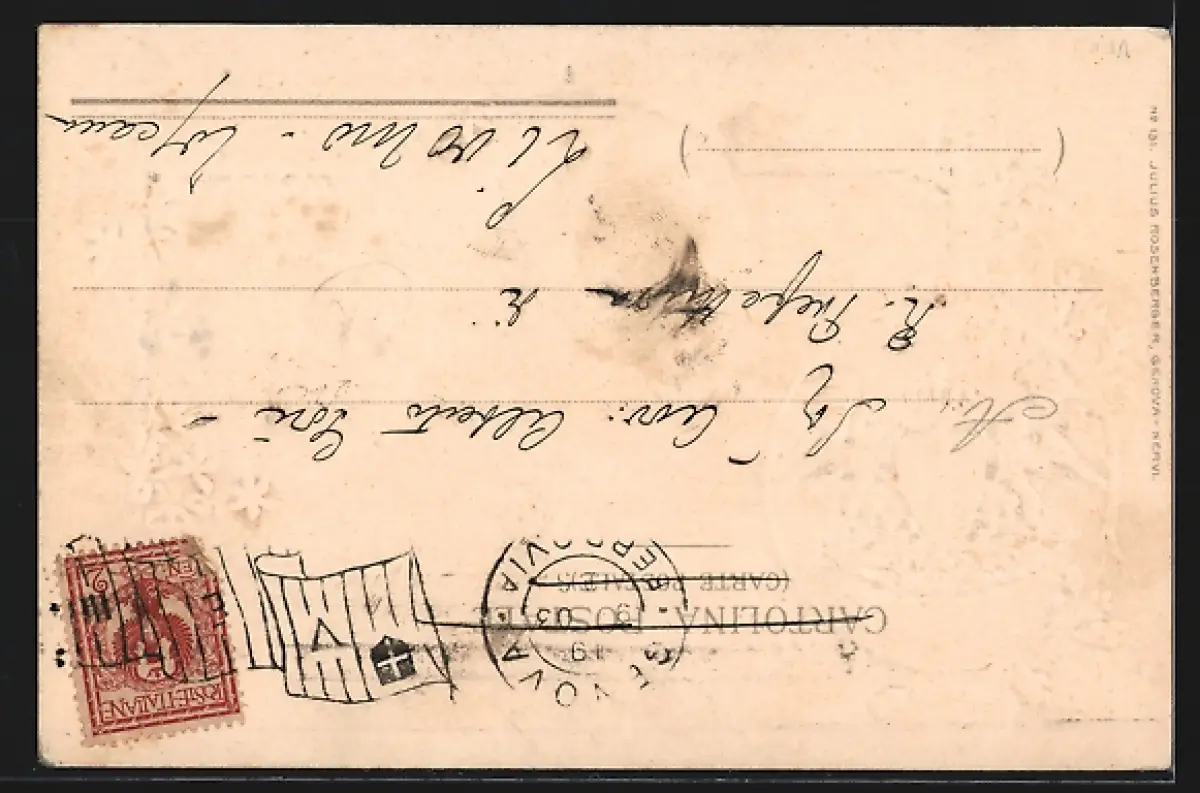 CARTOLINA POSTALE
(CARTE POSTALE)
GENOVA FERROVIA
19
03
V
POSTE ITALIANE
Al Sig. Cav. Alberto
R. Prefettura di
Livorno - Toscana
Nº 131. JULIUS ROSENBERGER, GENOVA - NERVI.